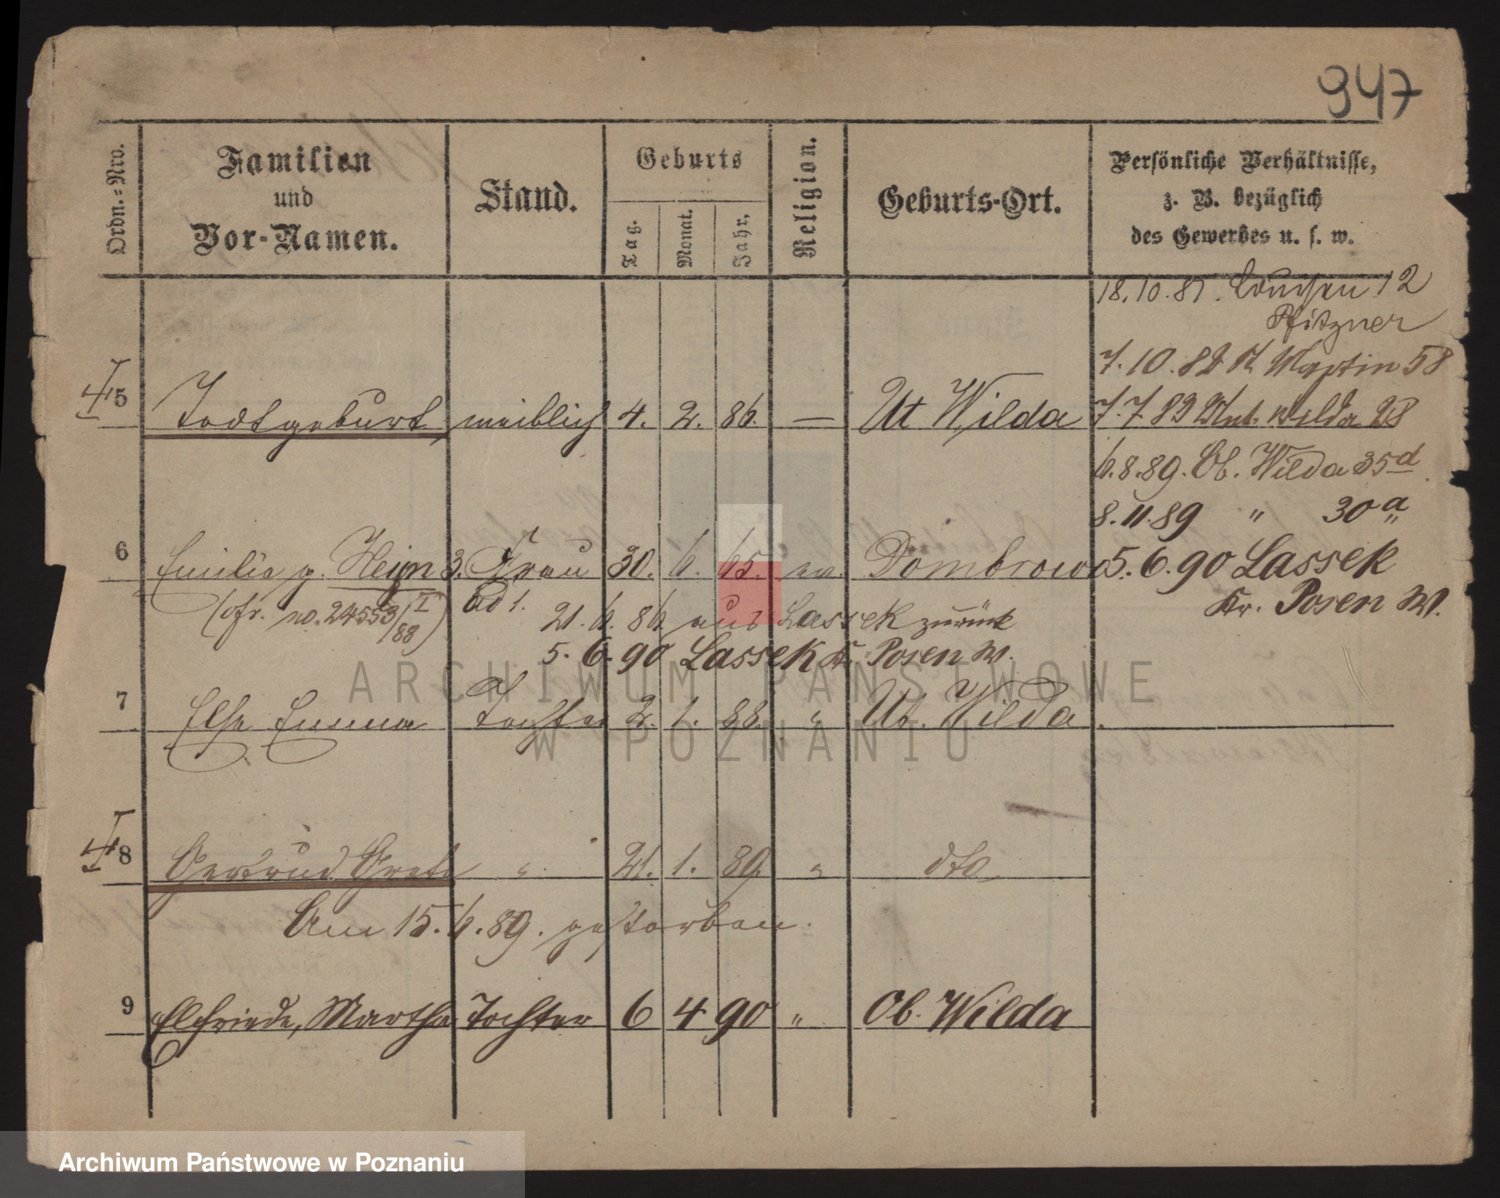 947
Ordn.-Nro.
Familien
und
Vor-Namen.
Stand.
Geburts
Tag.
Monat.
Jahr.
Religion.
Geburts-Ort.
Persönliche Verhältnisse,
z. B. bezüglich
des Gewerbes u. s. w.
18.10.87. 12
Pfitzner
7.10.88 St. Martin 58
I 5 Todtgeburt weiblich 4. 2. 86. — Ut Wilda
7.7.89 Unt. Wilda 28
6.8.89. Ob. Wilda 35d
8.11.89 " 30a
6 Emilie g. Heyn 3. Frau 30. 6. 65. ev Dombrowo
5.6.90 Lassek
Kr. Posen W.
(cfr. no. 24553/88 I) ad 1.
21.6.86 aus Lassek zurück
5.6.90 Lassek Kr. Posen W.
7 Else Emma Tochter 2. 1. 88. " Ut. Wilda
I 8 Gertrud Grete " 21. 1. 89 " dto
Am 15.6.89. gestorben.
9 Elfriede, Martha Tochter 6 4 90 " Ob. Wilda
ARCHIWUM PAŃSTWOWE
W POZNANIU
Archiwum Państwowe w Poznaniu